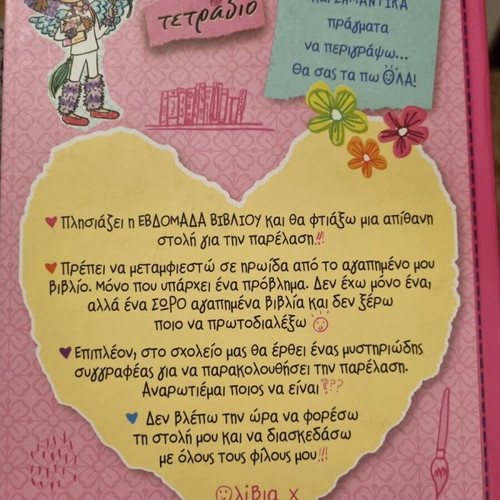 τετράδιο
ΣΗΜΑΝΤΙΚΑ
πράγματα
να περιγράψω...
θα σας τα πω ΟΛΑ!
Πλησιάζει η ΕΒΔΟΜΑΔΑ ΒΙΒΛΙΟΥ και θα φτιάξω μια απίθανη
στολή για την παρέλαση!!!
Πρέπει να μεταμφιεστώ σε ηρωίδα από το αγαπημένο μου
βιβλίο. Μόνο που υπάρχει ένα πρόβλημα. Δεν έχω μόνο ένα,
αλλά ένα ΣΩΡΟ αγαπημένα βιβλία και δεν ξέρω
ποιο να πρωτοδιαλέξω
Επιπλέον, στο σχολείο μας θα έρθει ένας μυστηριώδης
συγγραφέας για να παρακολουθήσει την παρέλαση.
Αναρωτιέμαι ποιος να είναι???
Δεν βλέπω την ώρα να φορέσω
τη στολή μου και να διασκεδάσω
με όλους τους φίλους μου!!!
Ολίβια x